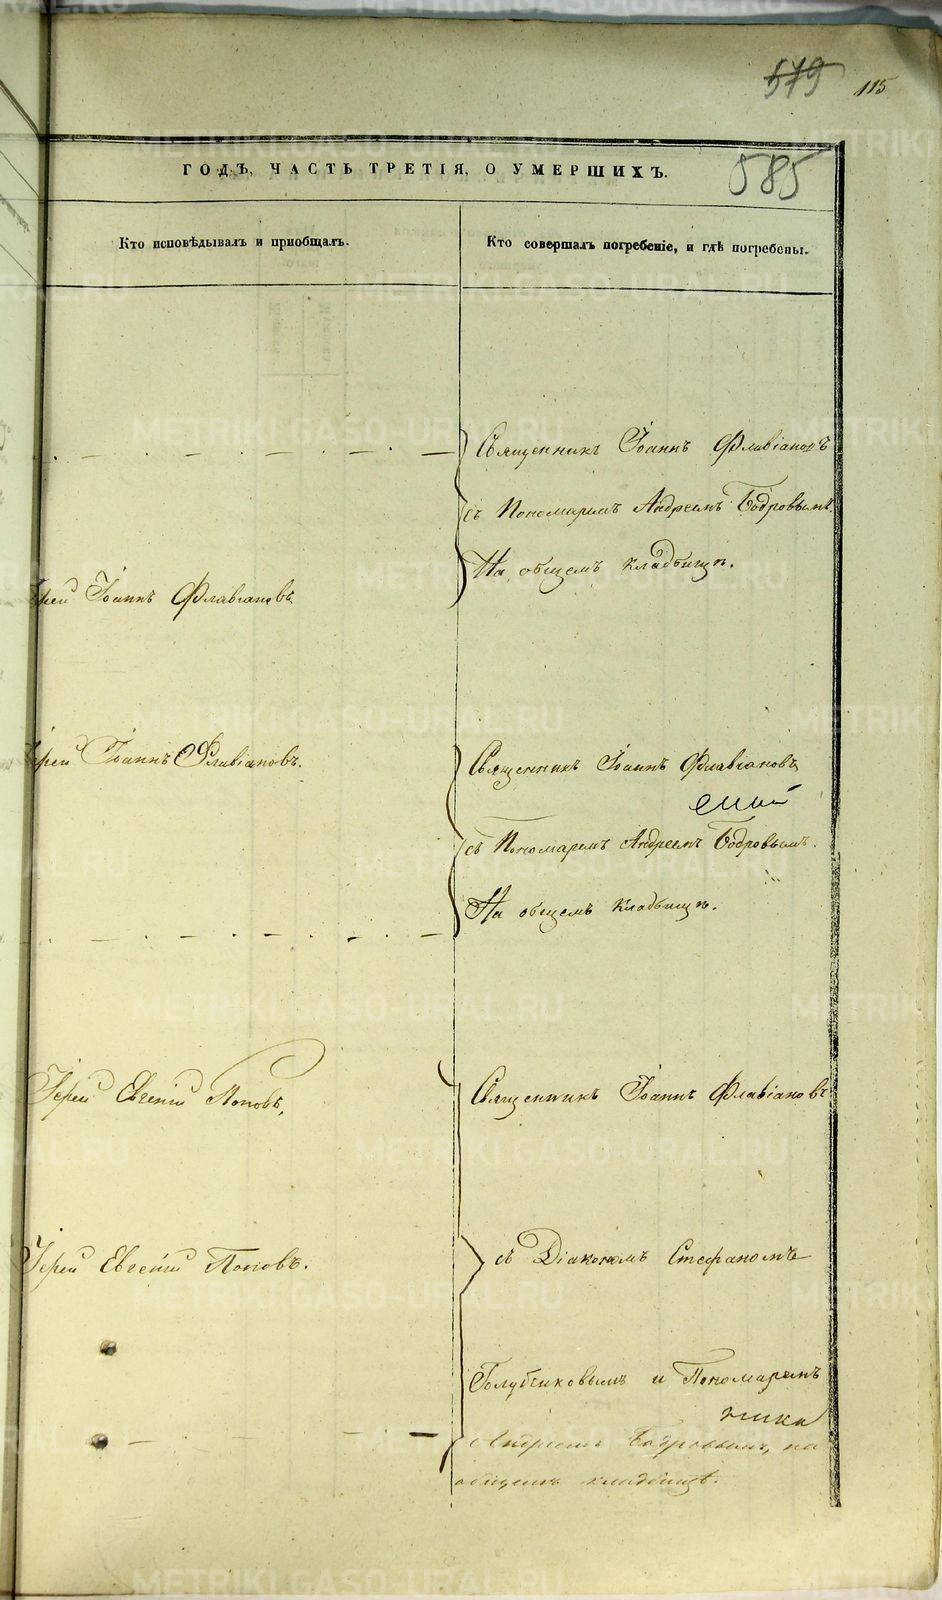 579 115
585
ГОДЪ, ЧАСТЬ ТРЕТІЯ, О УМЕРШИХЪ.
Кто исповѣдывалъ и пріобщалъ.
Кто совершалъ погребеніе, и гдѣ погребены.
Священникъ Іоаннъ Флавіановъ
съ Пономаремъ Андреемъ Бодровымъ.
На общемъ кладбищѣ.
Іерей Іоаннъ Флавіановъ
Іерей Іоаннъ Флавіановъ.
Священникъ Іоаннъ Флавіановъ
съ Пономаремъ Андреемъ Бодровымъ.
На общемъ кладбищѣ.
Іерей Евгеній Поповъ,
Священникъ Іоаннъ Флавіановъ
Іерей Евгеній Поповъ.
съ Діакономъ Стефаномъ
Голубчиковымъ и Пономаремъ
Андреемъ Бодровымъ, на
общемъ кладбищѣ.
METRIKI.GASO-URAL.RU